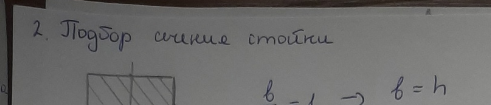 2. Подбор сичение стойки
b = h